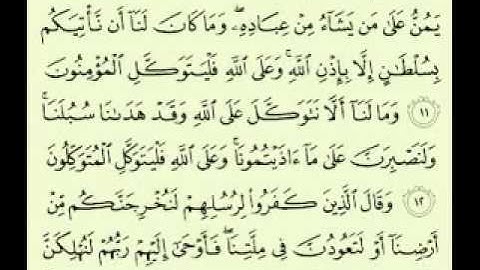 يَمُنُّ عَلَىٰ مَن يَشَآءُ مِنْ عِبَادِهِۦ ۖ وَمَا كَانَ لَنَآ أَن نَّأْتِيَكُم
بِسُلْطَٰنٍ إِلَّا بِإِذْنِ ٱللَّهِ ۚ وَعَلَى ٱللَّهِ فَلْيَتَوَكَّلِ ٱلْمُؤْمِنُونَ
١١ وَمَا لَنَآ أَلَّا نَتَوَكَّلَ عَلَى ٱللَّهِ وَقَدْ هَدَىٰنَا سُبُلَنَا ۚ
وَلَنَصْبِرَنَّ عَلَىٰ مَآ ءَاذَيْتُمُونَا ۚ وَعَلَى ٱللَّهِ فَلْيَتَوَكَّلِ ٱلْمُتَوَكِّلُونَ
١٢ وَقَالَ ٱلَّذِينَ كَفَرُوا۟ لِرُسُلِهِمْ لَنُخْرِجَنَّكُم مِّنْ
أَرْضِنَآ أَوْ لَتَعُودُنَّ فِى مِلَّتِنَا ۖ فَأَوْحَىٰٓ إِلَيْهِمْ رَبُّهُمْ لَنُهْلِكَنَّ